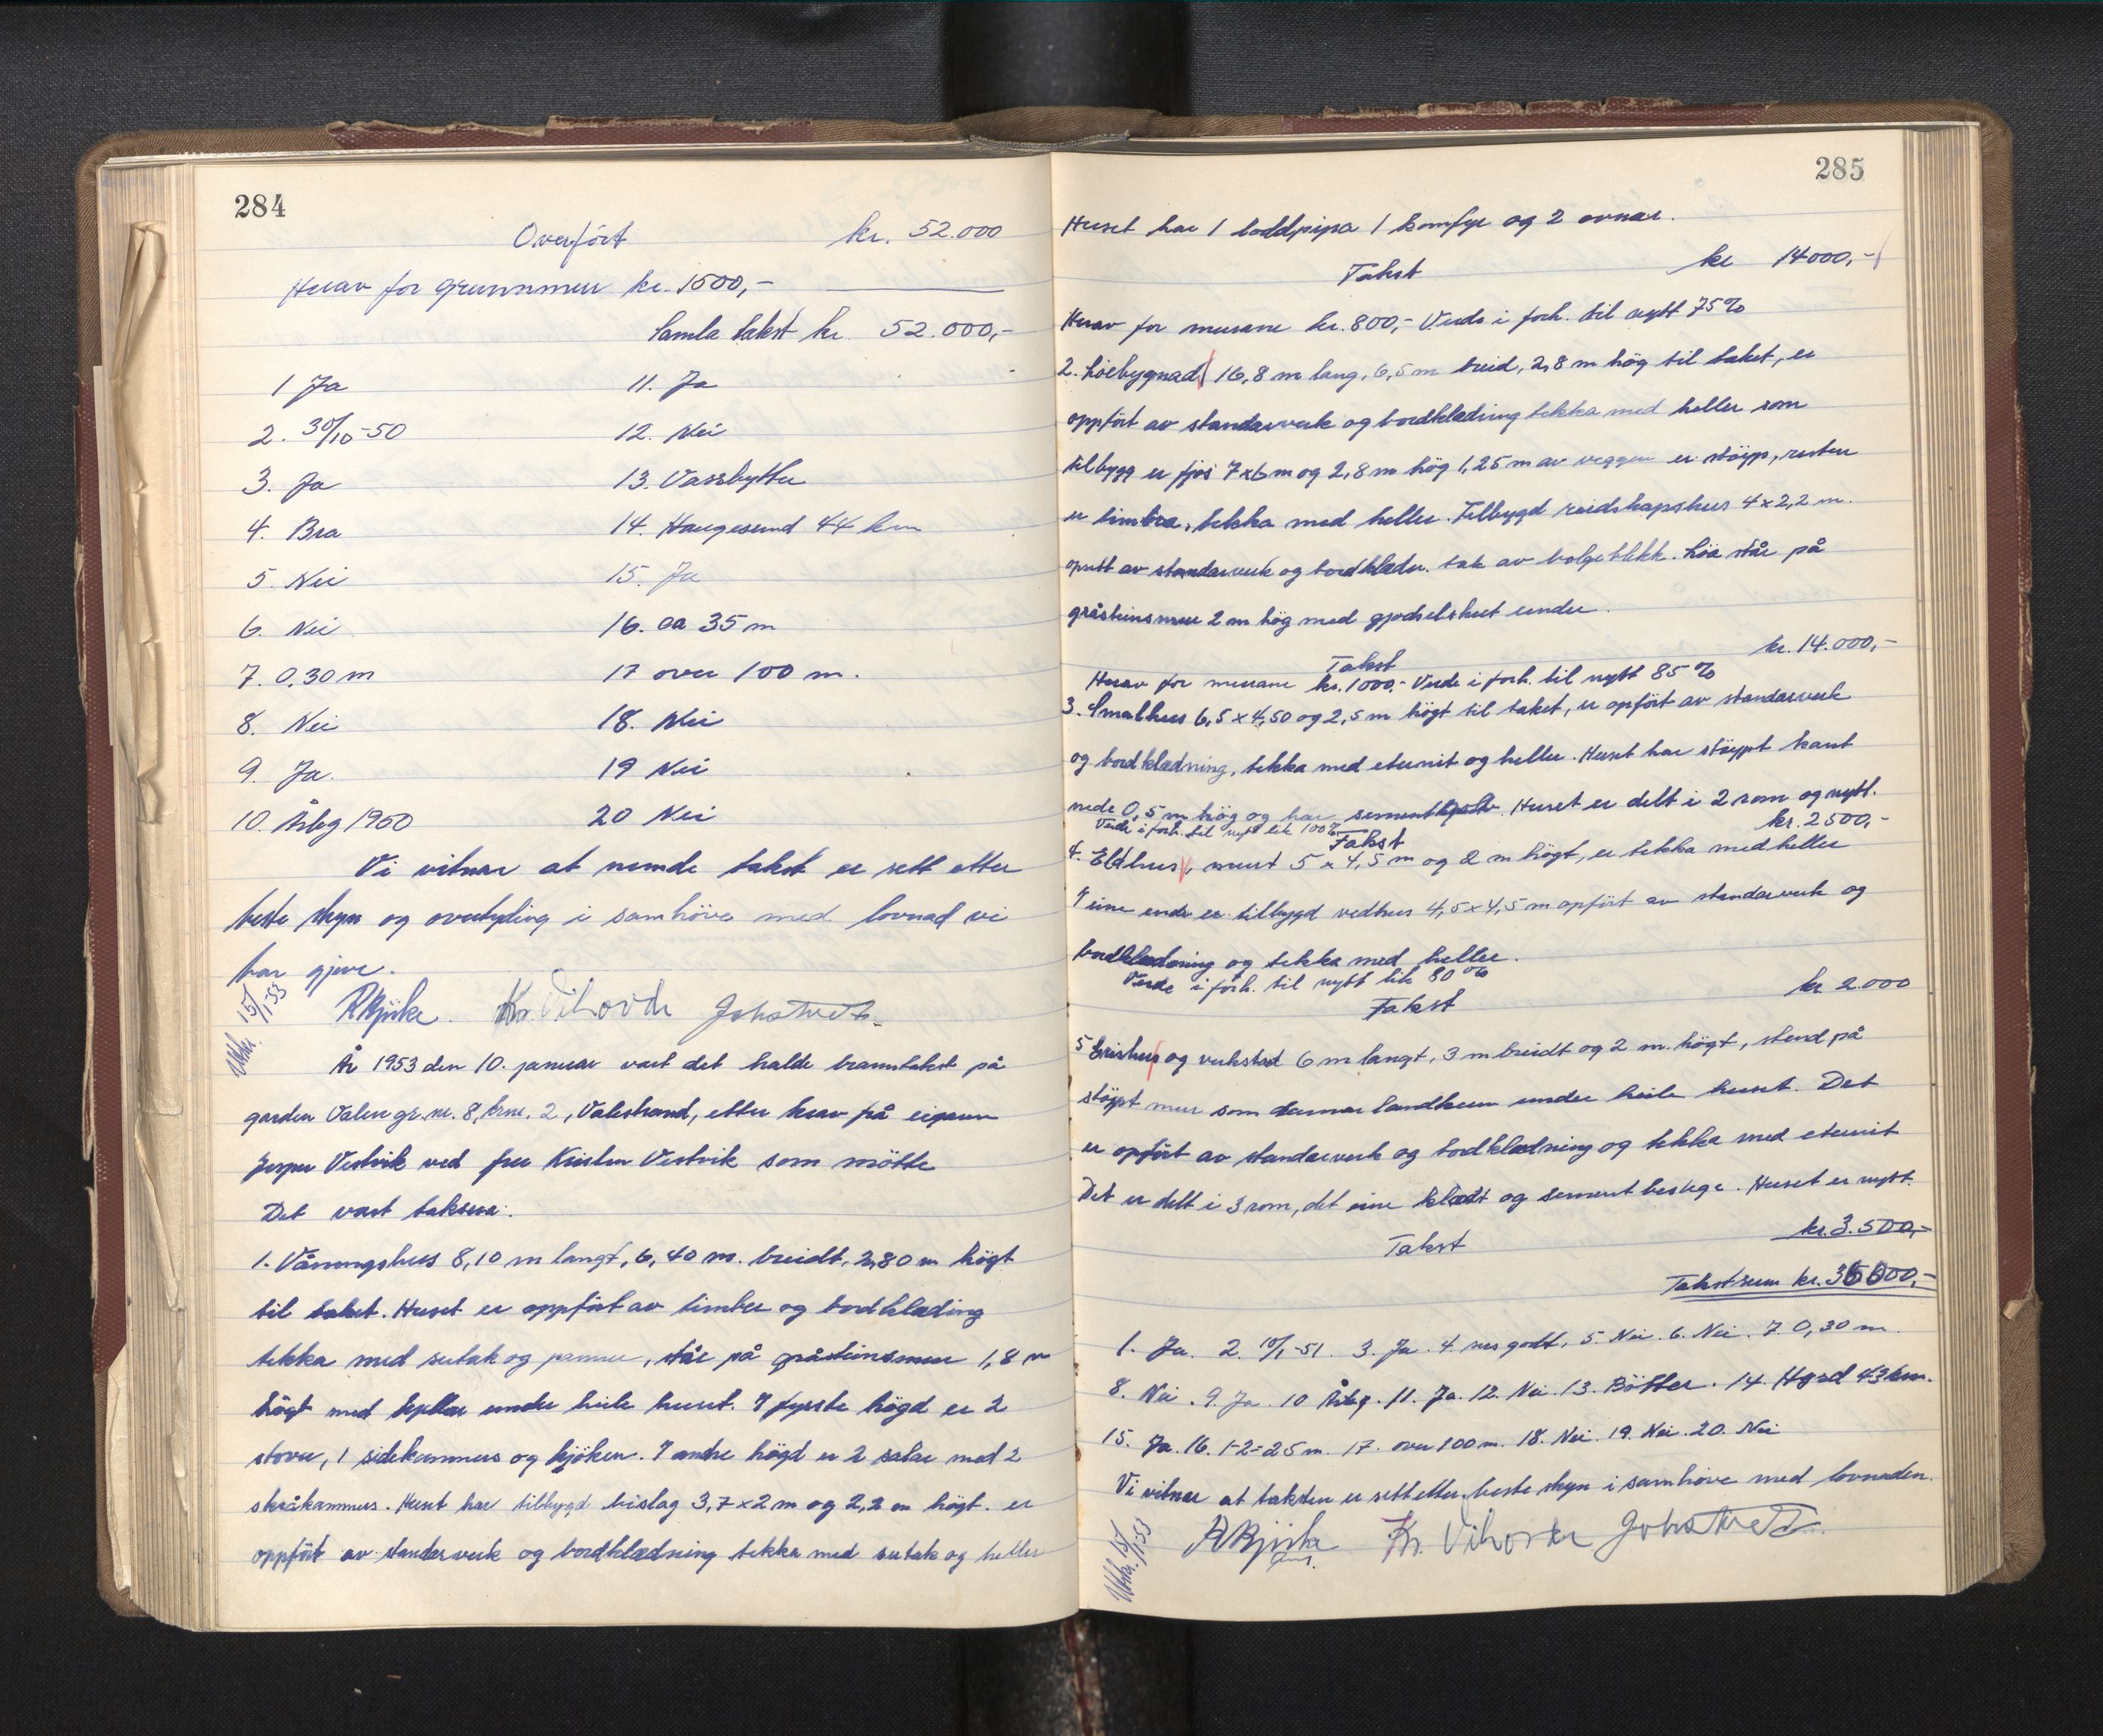 284
Overfört kr. 52.000
Herav for grunnmur kr. 1500,-
Samla takst kr. 52.000,-
1 Ja 11. Ja
2. 30/10-50 12. Nei
3. Ja 13. Vassbytter
4. Bra 14. Haugesund 44 km
5. Nei 15. Ja
6. Nei 16. ca 35 m
7. 0,30 m 17 over 100 m.
8. Nei 18. Nei
9. Ja 19 Nei
10. Årleg 1950 20 Nei
Vi vitnar at nemde takst er sett etter
beste skyn og overtyding i samhöve med lovnad vi
har gjeve.
15/1-53
Kr. Vihovde
År 1953 den 10. januar vart det halde branntakst på
garden Valen gr.nr. 8, brnr. 2, Valestrand, etter krav frå eigaren
Jesper Vestvik ved fru Kristen Vestvik som mötte
Det vart taksera:
1. Våningshus 8,10 m langt, 6,40 m. breidt, 2,80 m högt
til taket. Huset er oppfört av timber og bordklæding
tekka med sutak og pannur, står på gråsteinsmur 1,8 m
högt med kjellar under heile huset. I fyrste högd er 2
stover, 1 sidekammers og kjöken. I andre högd er 2 salar med 2
skråkammers. Huset har tilbygd bislag 3,7 x 2 m og 2,2 m högt. er
oppfört av standerverk og bordklædning tekka med sutak og heller
285
Huset har 1 loddpipa 1 komfyr og 2 ovnar.
Takst kr 14000,-
Herav for murane kr. 800,- Verde i forh. til nytt 75%
2. Löebygnad 16,8 m lang, 6,5 m breid, 2,8 m hög til taket, er
oppfört av standarverk og bordklædning tekka med heller som
tilbygg er fjös 7x6 m og 2,8 m hög 1,25 m av veggen er stöyp, resten
er timbra, tekka med heller. Tilbygd reidskapshus 4 x 2,2 m.
av standarverk og bordklædn. tak av bolgeblikk. Löa står på
gråsteinsmur 2 m hög med gjodselshus under.
Takst kr. 14.000,-
Herav for murane kr. 1000,- Verde i forh. til nytt 85%
3. Smalhus 6,5 x 4,50 og 2,5 m högt til taket, er opfört av standarverk
og bordklædning, tekka med eternit og heller. Huset har stöypt kant
nede 0,5 m hög og har sementgolv. Huset er delt i 2 rom og nytt.
Verde i forh. til nytt lik 100% Takst kr. 2500,-
4. Eldhus, murt 5 x 4,5 m og 2 m högt, er tekka med heller
I eine ende er tilbygd vedhus 4,5 x 4,5 m opfört av standarverk og
bordklædning og tekka med heller.
Verde i forh. til nytt lik 80%
Takst kr 2.000
5 Grishus og verkstad 6 m langt, 3 m breidt og 2 m. högt, stend på
stöypt mur som dannar landkum under heile huset. Det
er opfört av standarverk og bordklædning og tekka med eternit
Det er delt i 3 rom, det eine klædt og sement beslege. Huset er nytt.
Takst kr. 3.500,-
Takstsum kr. 36000,-
1. Ja. 2. 10/1-51. 3. Ja. 4. nes godt, 5. Nei. 6. Nei. 7. 0,30 m.
8. Nei. 9. Ja. 10 Årleg. 11. Ja. 12. Nei. 13. Bötter. 14. Hgsd 43 km.
15. Ja. 16. 1-2=25 m. 17. over 100 m. 18. Nei. 19. Nei. 20. Nei
Vi vitnar at taksten er sett etter beste skyn i samhöve med lovnaden.
15/1-53
Kr. Vihovde